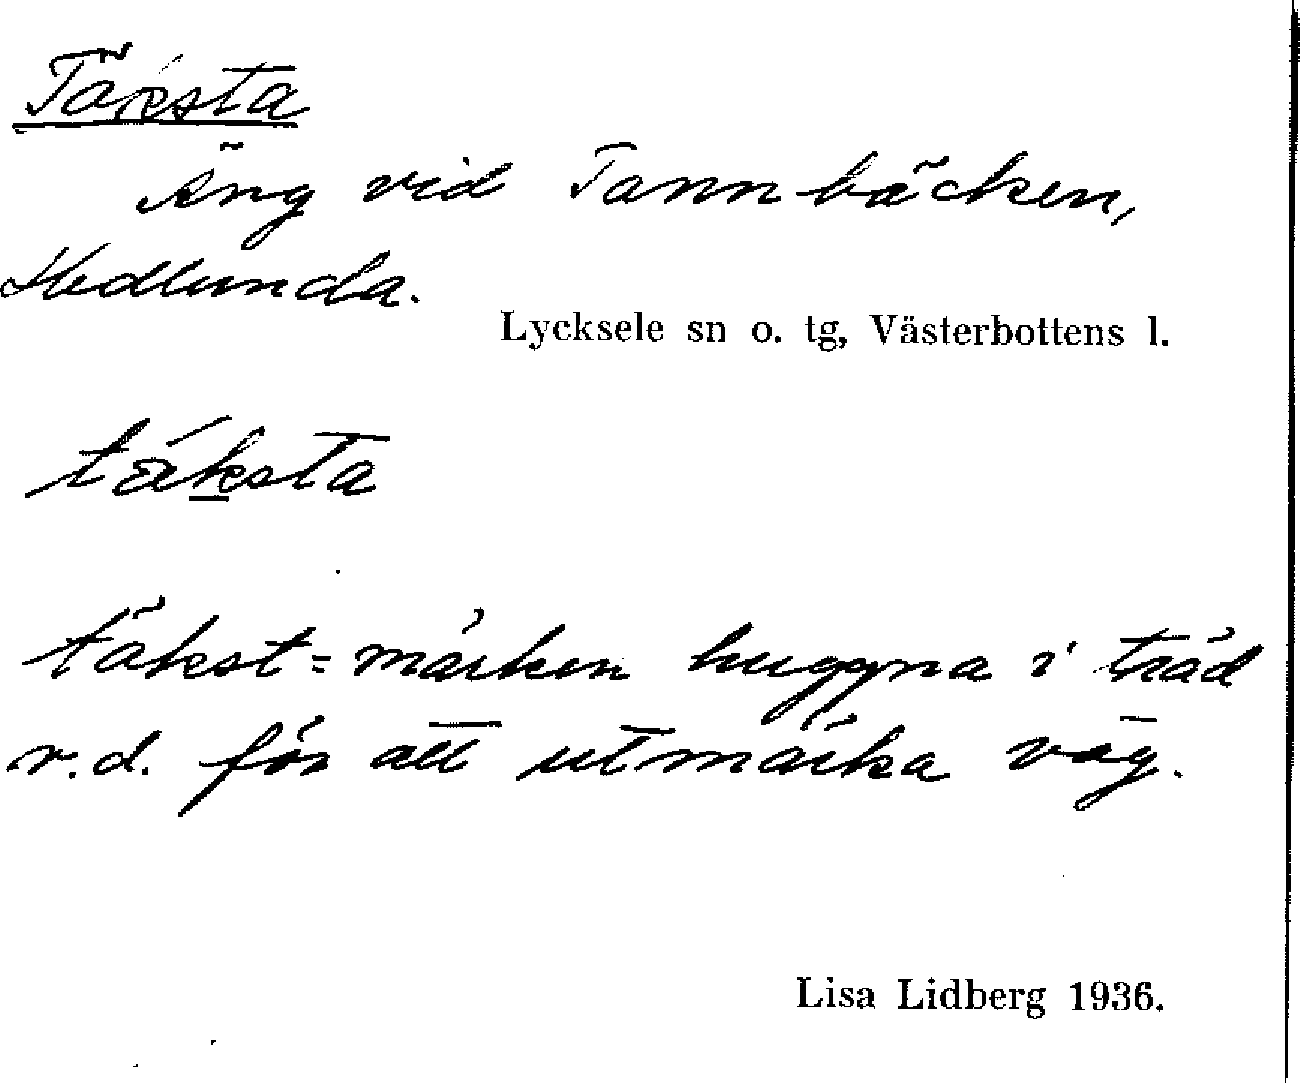 Täksta
Äng vid Tannbäcken,
Hedlunda.
Lycksele sn o. tg, Västerbottens l.
táksta
täkst = märken huggna i träd
v.d. för att utmärka väg.
Lisa Lidberg 1936.